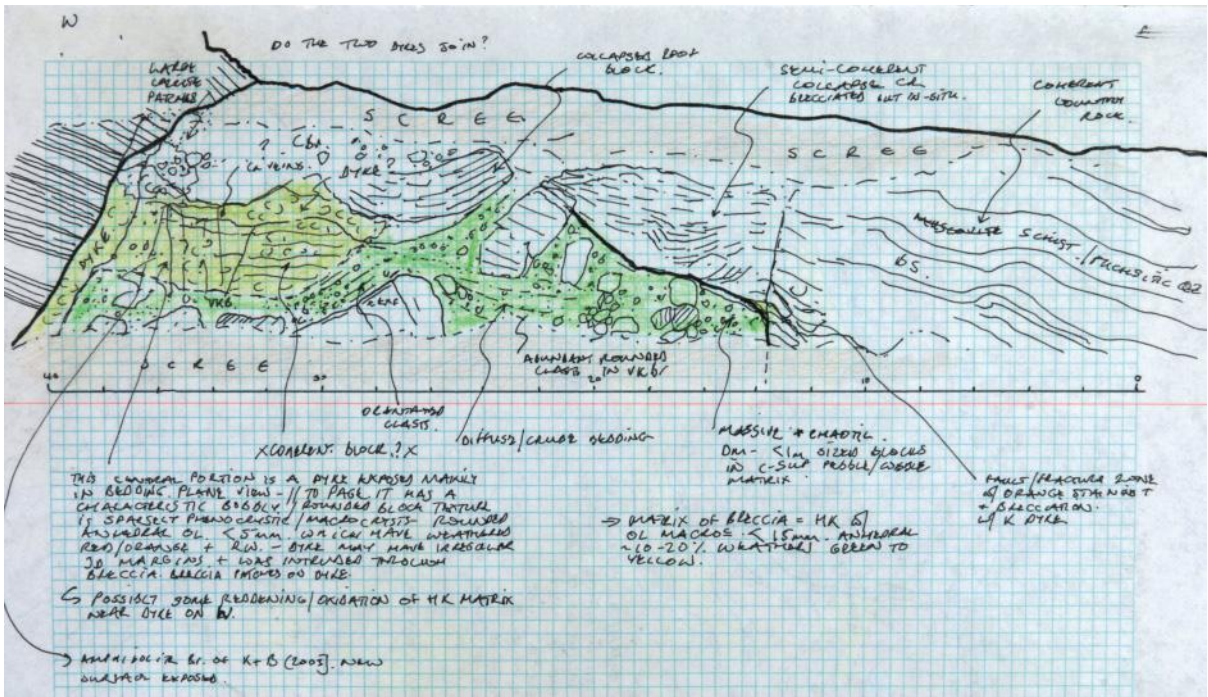 W
E
DO THE TWO DYKES JOIN?
LARGE
CALCITE
PATCHES
COLLAPSED ROOF
BLOCK.
SEMI-COHERENT
COLLAPSE CR
BRECCIATED BUT IN-SITU.
COHERENT
COUNTRY
ROCK.
SCREE
SCREE
? CBr ?
CR VEINS
DYKE?
DYKE
VKB
MUSCOVITE SCHIST / FUCHSITIC QZ
BS.
SCREE
ABUNDANT ROUNDED
CLASTS IN VKB
40
30
20
10
0
ORIENTATED
CLASTS.
XCOHERENT BLOCK?X
DIFFUSE/CRUDE BEDDING
MASSIVE + CHAOTIC.
DM- <1m SIZED BLOCKS
IN C-SUP PEBBLE/
MATRIX
FAULT/FRACTURE ZONE
W/ ORANGE STAINING +
+ BRECCIATION.
W/ K DYKE
THIS CENTRAL PORTION IS A DYKE EXPOSED MAINLY
IN BEDDING PLANE VIEW - // TO PAGE IT HAS A
CHARACTERISTIC BOBBLY/ROUNDED BLOCK TEXTURE
IS SPARSELY PHENOCRYSTIC/MACROCRYSTS - ROUNDED
ANHEDRAL OL. <5mm. WHICH HAVE WEATHERED
RED/ORANGE + RW. - DYKE MAY HAVE IRREGULAR
3D MARGINS + WAS INTRUDED THROUGH
BRECCIA. BRECCIA PATCHES ON DYKE.
POSSIBLY SOME REDDENING/OXIDATION OF HK MATRIX
NEAR DYKE ON W.
→ MATRIX OF BRECCIA = HK W/
OL MACROS <15mm. ANHEDRAL
~10-20% WEATHERS GREEN TO
YELLOW.
Br. OF K+B (2005). NEW
SURFACE EXPOSED